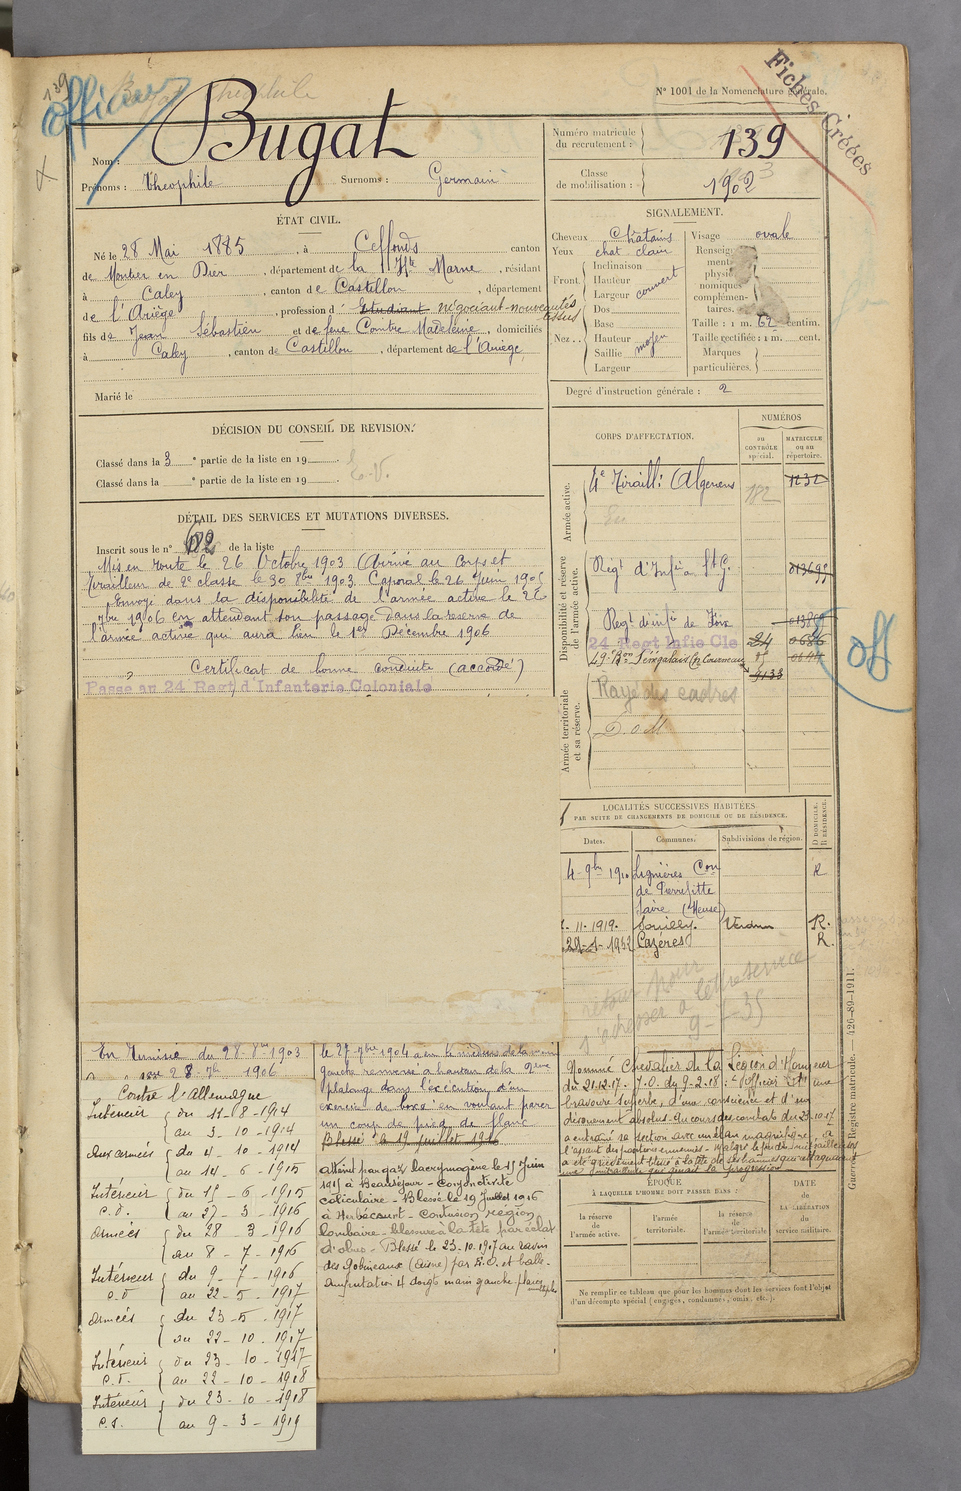 139
officier
Bugat Theophile
N° 1001 de la Nomenclature générale.
Fiches Créées
Nom : Bugat
Prénoms : Théophile Surnoms : Germain
Numéro matricule
du recrutement : 139
Classe
de mobilisation : 1902
ÉTAT CIVIL.
Né le 28 Mai 1885, à Ceffonds canton
de Montier en Der, département de la Hte Marne, résidant
à Caley, canton de Castillon, département
de l'Ariège, profession d' Etudiant négociant-nouveautés
tissus
fils de Jean Sébastien et de feue Contre Madeleine, domiciliés
à Caley, canton de Castillon, département de l'Ariège
Marié le
SIGNALEMENT.
Cheveux Chatains
Yeux chat clair
Front. Inclinaison
Hauteur
Largeur couvert
Nez.. Dos
Base
Hauteur
Saillie moyen
Largeur
Visage ovale
Renseigne-
ments
physio-
nomiques
complémen-
taires.
Taille : 1 m. 62 centim.
Taille rectifiée : 1 m. cent.
Marques
particulières.
Degré d'instruction générale : 2
DÉCISION DU CONSEIL DE REVISION.
Classé dans la 3 e partie de la liste en 19
Classé dans la e partie de la liste en 19
E.V.
DÉTAIL DES SERVICES ET MUTATIONS DIVERSES.
Inscrit sous le n° de la liste
Mis en route le 26 Octobre 1903 Arrivé au Corps et
tirailleur de 2e classe le 30 8bre 1903. Caporal le 26 Juin 1905
Envoyé dans la disponibilité de l'armée active le 26
7bre 1906 en attendant son passage dans la réserve de
l'armée active qui aura lieu le 1er Décembre 1906
Certificat de bonne conduite (accordé)
Passe au 24 Regt d'Infanterie Coloniale
CORPS D'AFFECTATION.
NUMÉROS
au
CONTRÔLE
spécial.
MATRICULE
ou au
répertoire.
Armée active.
4e Tiraill: Algériens 182 1232
Disponibilité et réserve
de l'armée active.
Régt d'Infie à St G.
Régt d'infie de Foix
24 Regt Infie Cle 24 0686
49e Bon Sénégalais
9133
Armée territoriale
et sa réserve.
Rayé des cadres
D.o.M.
off
LOCALITÉS SUCCESSIVES HABITÉES
PAR SUITE DE CHANGEMENTS DE DOMICILE OU DE RÉSIDENCE.
Dates. Communes. Subdivisions de région. D DOMICILE. R RÉSIDENCE.
4-9bre 1910 Lignières Con R
de Pierrefitte
s/aire (Meuse)
11.1919. Souilly. Verdun R.
1932 Cazères R.
retour pour
9-1-35
En Tunisie du 28-8bre 1903
au 28-7bre 1906
Contre l'Allemagne
Intérieur du 11-8-1914
au 3-10-1914
Aux armées du 4-10-1914
au 14-6-1915
Intérieur du 15-6-1915
C.D. au 27-3-1916
Armées du 28-3-1916
au 8-7-1916
Intérieur du 9-7-1916
C.D au 22-5-1917
Armées du 23-5-1917
au 22-10-1917
Intérieur du 23-10-1917
C.D. au 22-10-1918
Intérieur du 23-10-1918
C.S. au 9-3-1919
le 27-7bre 1904 a eu le médius de la main
gauche renversé à hauteur de la 2ème
phalange dans l'exécution d'un
exercice de boxe en voulant parer
un coup de pied de flanc
Blessé à 19 Juillet 1916
atteint par gaz lacrymogène le 15 Juin
1915 à Beauséjour - Conjonctivite
Blessé le 19 Juillet 1916
à Herbécourt - Contusion région
lombaire - blessure à la tête par éclat
d'obus - Blessé le 23-10.1917 au ravin
des Gobineaux (Aisne) par E.O. et balle.
Amputation 4 doigts main gauche. plaies
multiples
Nommé Chevalier de la Légion d'Honneur
du 21.12.17 - J.O. du 9-2-18 : "Officier d'une
bravoure superbe, d'une conscience et d'un
dévouement absolus. Au cours des combats du 23.10.17
a entraîné sa section avec un élan magnifique, à
l'assaut des positions ennemies - malgré le feu des mitrailleuses
a été grièvement blessé à la tête de ses hommes
une mitrailleuse qui gênait la progression
ÉPOQUE
À LAQUELLE L'HOMME DOIT PASSER DANS :
la réserve
de
l'armée active.
l'armée
territoriale.
la réserve
de
l'armée territoriale
DATE
de
LA LIBÉRATION
du
service militaire.
Ne remplir ce tableau que pour les hommes dont les services font l'objet
d'un décompte spécial (engagés, condamnés, omis, etc.).
Guerre. — Registre matricule. — 426-89-1911.